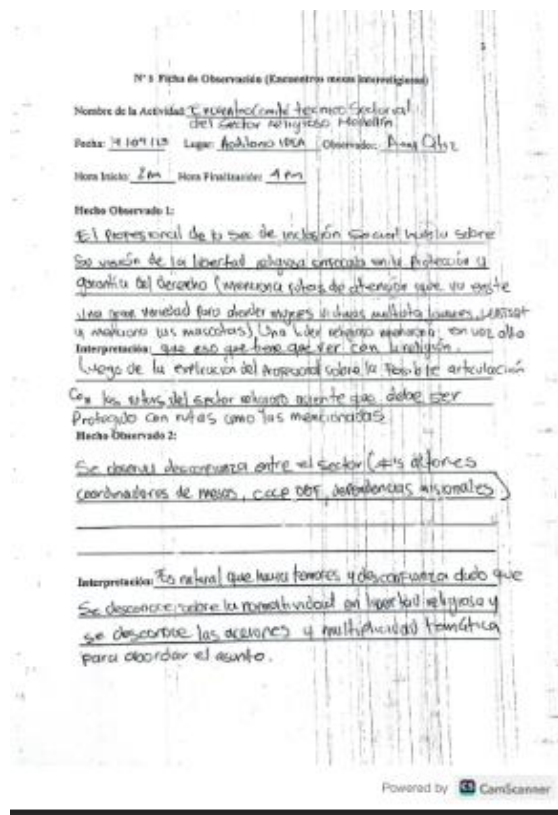 N° 3 Ficha de Observación (Encuentros mesas interreligiosas)
Nombre de la Actividad: Encuentro comité técnico Sectorial
del sector religioso Medellín
Fecha: Lugar: Auditorio IDEA Observador:
Hora Inicio: 2 pm Hora Finalización: 4 pm
Hecho Observado 1:
El profesional de la sec de inclusión social habla sobre
Su visión de la libertad religiosa enfocada en la Protección y
garantía del derecho (menciona rutas de atención que ya existe
Una gran variedad para atender mujeres victimas
y menciono las mascotas) Una Líder religiosa menciona en voz alta
Interpretación: que eso que tiene que ver con la religión.
Luego de la explicación del profesional sobre la Posible articulación
Con los del sector religioso que debe ser
Protegido con rutas como las mencionadas
Hecho Observado 2:
Se observa desconfianza entre el sector actores
coordinadores de mesas, dependencias misionales)
Interpretación: Es natural que haya temores y desconfianza dado que
Se desconoce sobre la normatividad en libertad religiosa y
se desconoce las acciones y multiplicidad temática
para abordar el asunto.
Powered by CS CamScanner